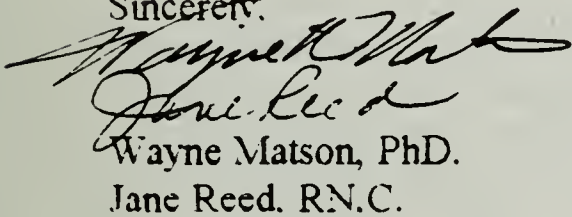 Sincerely.
Wayne Mat
Jane Reed
Wayne Matson, PhD.
Jane Reed. RN.C.